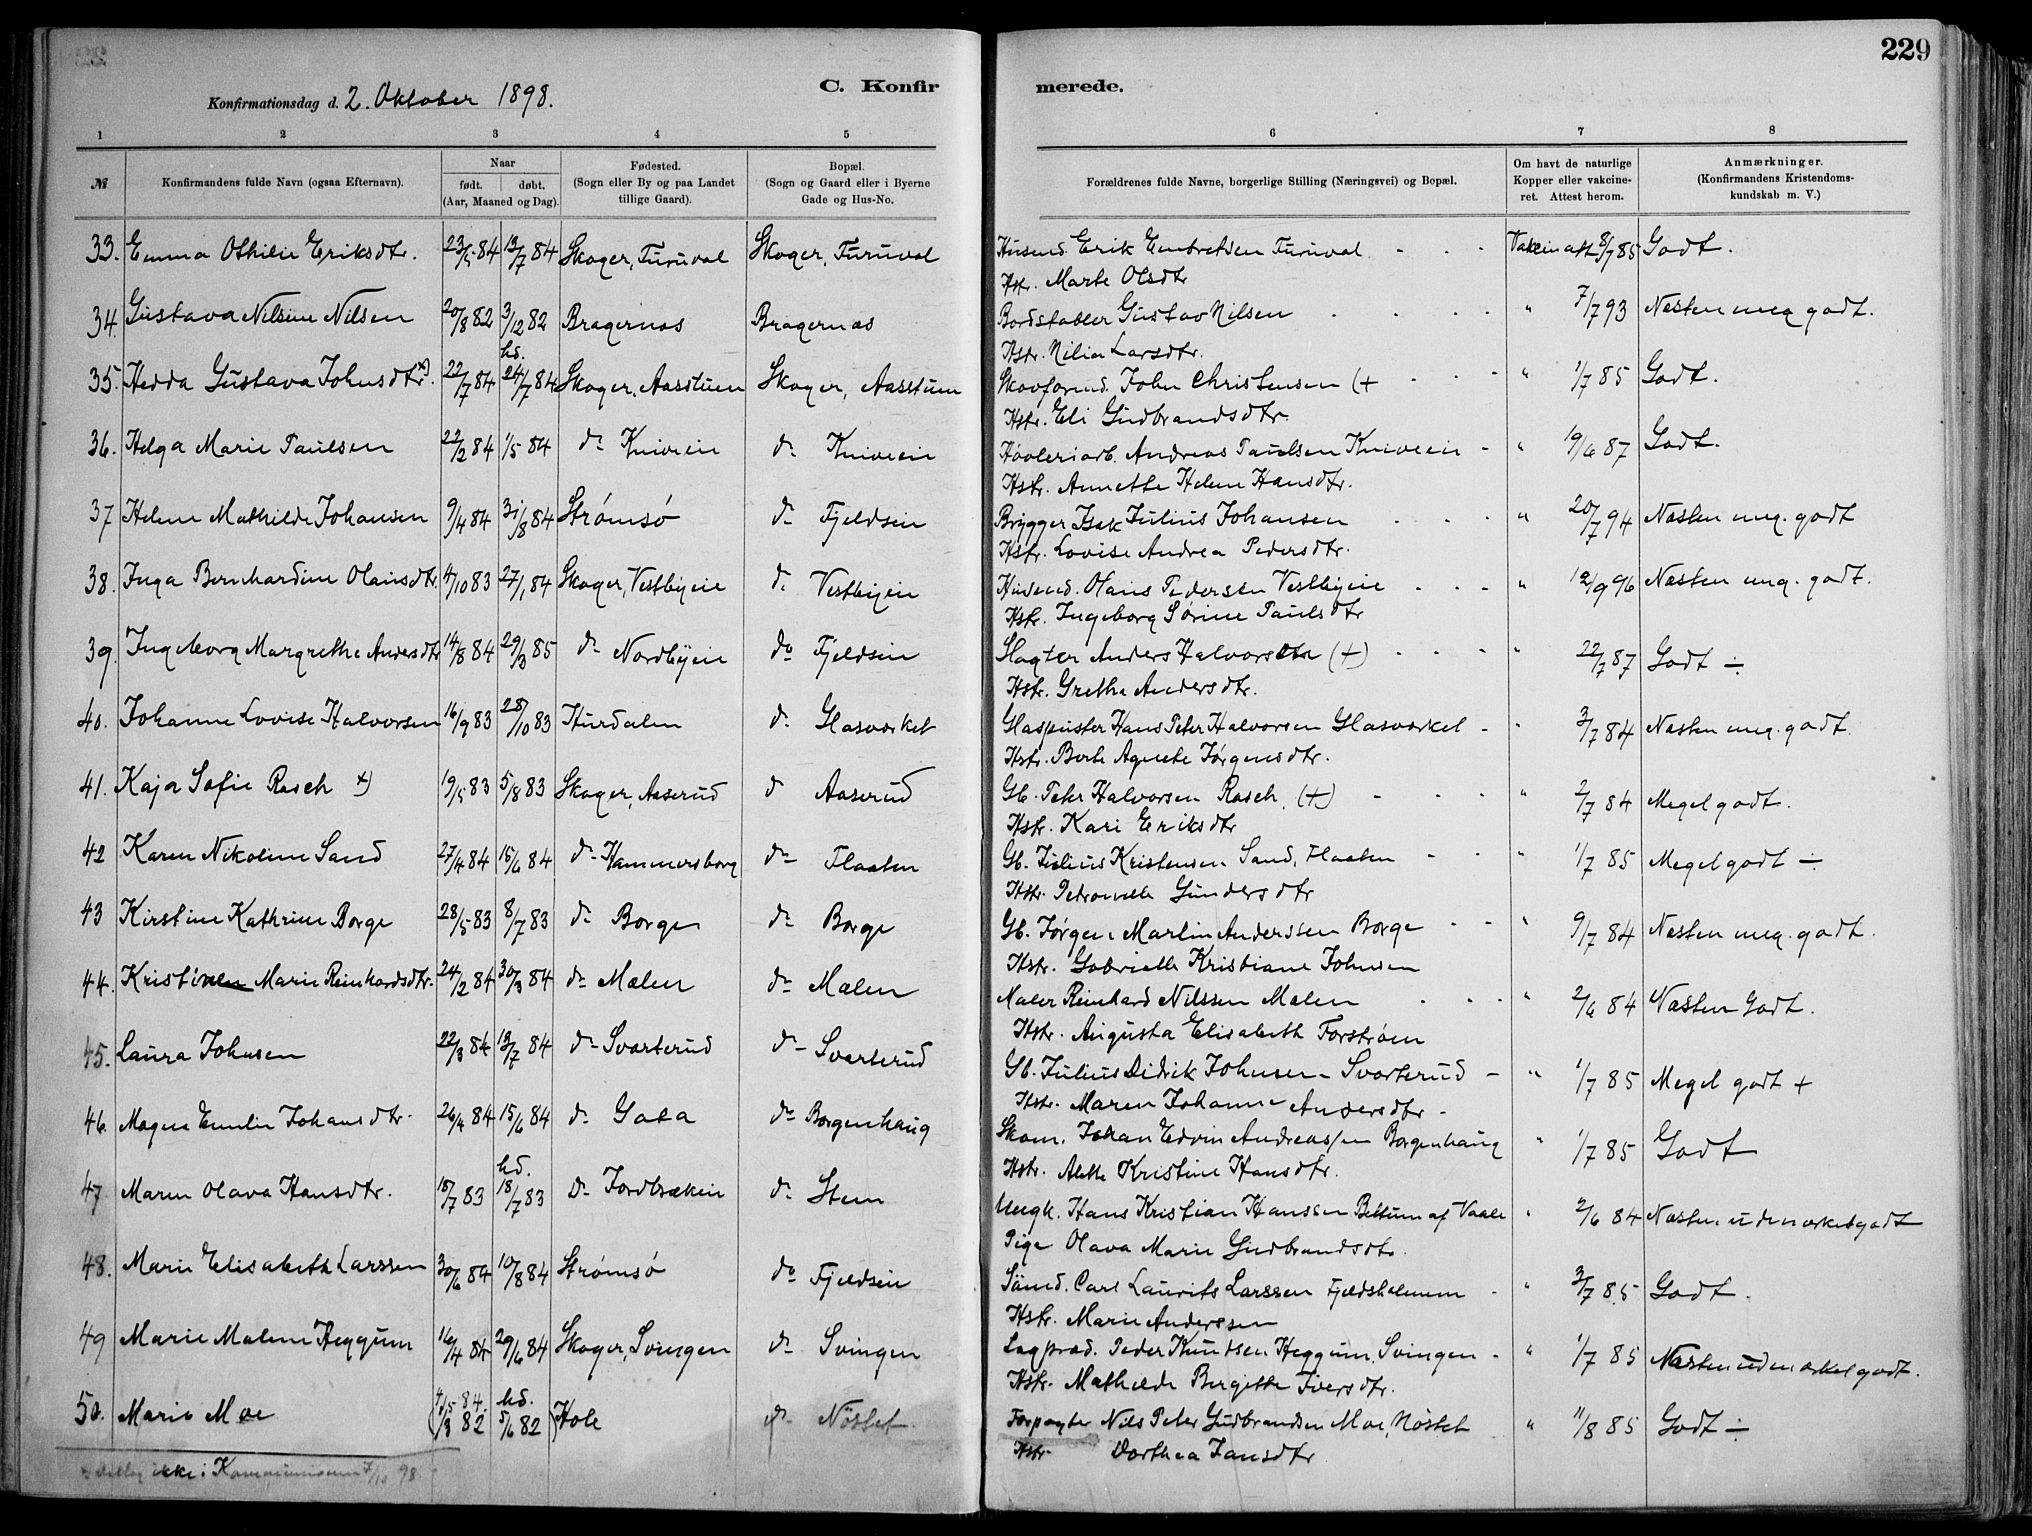 229
Konfirmationsdag d. 2. Oktober 1898.
C. Konfir
merede.
1 2 3 4 5 6 7 8
№ Konfirmandens fulde Navn (ogsaa Efternavn).
Naar
født. døbt.
(Aar, Maaned og Dag).
Fødested.
(Sogn eller By og paa Landet
tillige Gaard).
Bopæl.
(Sogn og Gaard eller i Byerne
Gade og Hus-No.
Forældrenes fulde Navne, borgerlige Stilling (Næringsvei) og Bopæl.
Om havt de naturlige
Kopper eller vakcine-
ret. Attest herom.
Anmærkninger.
(Konfirmandens Kristendoms-
kundskab m. V.)
33. Emma Othilie Eriksdtr. 23/5 84 13/7 84 Skoger, Furuval Skoger, Furuval Husmd. Erik Embretsen Furuval - - Vakcin att 8/7 85 Godt.
Hstr. Marte Olsdtr
34. Gustava Nilsine Nilsen 20/8 82 3/12 82 Bragernæs Bragernæs Bordstabler Gustav Nilsen " 7/7 93 Næsten meg godt.
Hstr. Nilia Larsdtr.
35. Hedda Gustava Johnsdtr x). 22/7 84 hd. 24/7 84 Skoger, Aasstuen Skoger, Aasstuen Skovformd. John Christensen (+ " 1/7 85 Godt.
Hstr. Eli Gudbrandsdtr.
36. Helga Marie Paulsen 22/2 84 1/5 84 do Kniveien do Kniveien Høvleriarb. Andreas Paulsen Kniveien - " 19/6 87 Godt.
Hstr. Annette Helene Hansdtr.
37 Helene Mathilde Johansen 9/4 84 31/8 84 Strømsø do Fjeldsein Brygger Isak Julius Johansen " 20/7 94 Næsten meg. godt
Hstr. Lovise Andrea Pedersdtr.
38. Inga Bernhardine Olausdtr. 4/10 83 27/1 84 Skoger, Vestbyeie do Vestbyeie Husmd. Olaus Pedersen Vestbyeie " 12/9 96 Næsten meg. godt.
Hstr. Ingeborg Sørine Paulsdtr
39. Ingeborg Margrethe Andersdtr 14/8 84 29/3 85 do Nordbyeie do Fjeldsein Slagter Anders Halvorsen (+) " 22/7 87 Godt ÷
Hstr. Grethe Andersdtr.
40. Johanne Lovise Halvorsen 16/9 83 28/10 83 Hurdalen do Glasværket Glaspuster Hans Peter Halvorsen Glasværket - " 3/7 84 Næsten meg. godt.
Hstr. Berte Agnete Jørgensdtr.
41. Kaja Sofie Rasch x) 19/5 83 5/8 83 Skoger, Aaserud do Aaserud Gb. Peter Halvorsen Rasch. (+) " 2/7 84 Meget godt.
Hstr. Kari Eriksdtr
42 Karen Nikoline Sand 27/4 84 15/6 84 do Hammersborg do Flaaten Gb. Julius Kristensen Sand, Flaaten " 1/7 85 Meget godt ÷
Hstr. Petronelle Gundersdtr
43 Kirstine Kathrine Borge 28/5 83 8/7 83 do Borge do Borge Gb. Jørgen Martin Anderssen Borge " 9/7 84 Næsten meg. godt.
Hstr. Gabrielle Kristiane Johnsen
44. Kristine Marie Reinhardsdtr. 24/2 84 30/3 84 do Malen do Malen Maler Reinhard Nilssen Malen " 2/6 84 Næsten Godt.
Hstr. Augusta Elisabeth Forstrøm
45. Laura Johnsen 22/3 84 13/7 84 do Svarterud do Svarterud Gb. Julius Didrik Johnsen Svarterud - " 1/7 85 Meget godt +
Hstr. Maren Johanne Andersdtr -
46. Magna Emilie Johansdtr. 26/4 84 15/6 84 do Gata do Borgenhaug Skom. Johan Edvin Andreassen Borgenhaug " 1/7 85 Godt
Hstr. Alette Kristine Hansdtr.
47. Maren Olava Hansdtr. 18/7 83 hd. 18/7 83 do Jordbrækken do Steen Ungk. Hans Kristian Hanssen Bettum af Vaale " 2/6 84 Næsten udmærketgodt
Pige Olava Marie Gudbrandsdtr.
48. Marie Elisabeth Larssen 30/6 84 10/8 84 Strømsø do Fjeldsein Sømd. Carl Laurits Larssen Fjeldsholmen " 3/7 85 Godt.
Hstr. Marie Anderssen
49 Marie Malene Heggum 16/4 84 29/6 84 Skoger, Svingen do Svingen Lægpræd. Peder Knudsen Heggum, Svingen - " 1/7 85 Næsten udmærketgodt.
Hstr. Mathilde Birgitte Iversdtr.
50. Marie Moe (4/5 84. 1/3 82 hd. 5/6 82) Hole do Nøstet. Forpagter Nils Peter Gudbrandsen Moe, Nøstet " 11/8 85 Godt ÷
Hstr. Dorthea Jansdtr
ikke i Kommunionen 7/10 98.